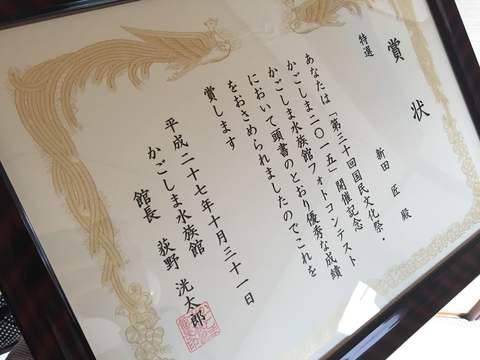 賞状
特選
新田 匠 殿
あなたは「第三十回国民文化祭・
かごしま二〇一五」開催記念
かごしま水族館フォトコンテスト
において頭書のとおり優秀な成績
をおさめられましたのでこれを
賞します
平成二十七年十月三十一日
かごしま水族館
館長 荻野 洸太郎